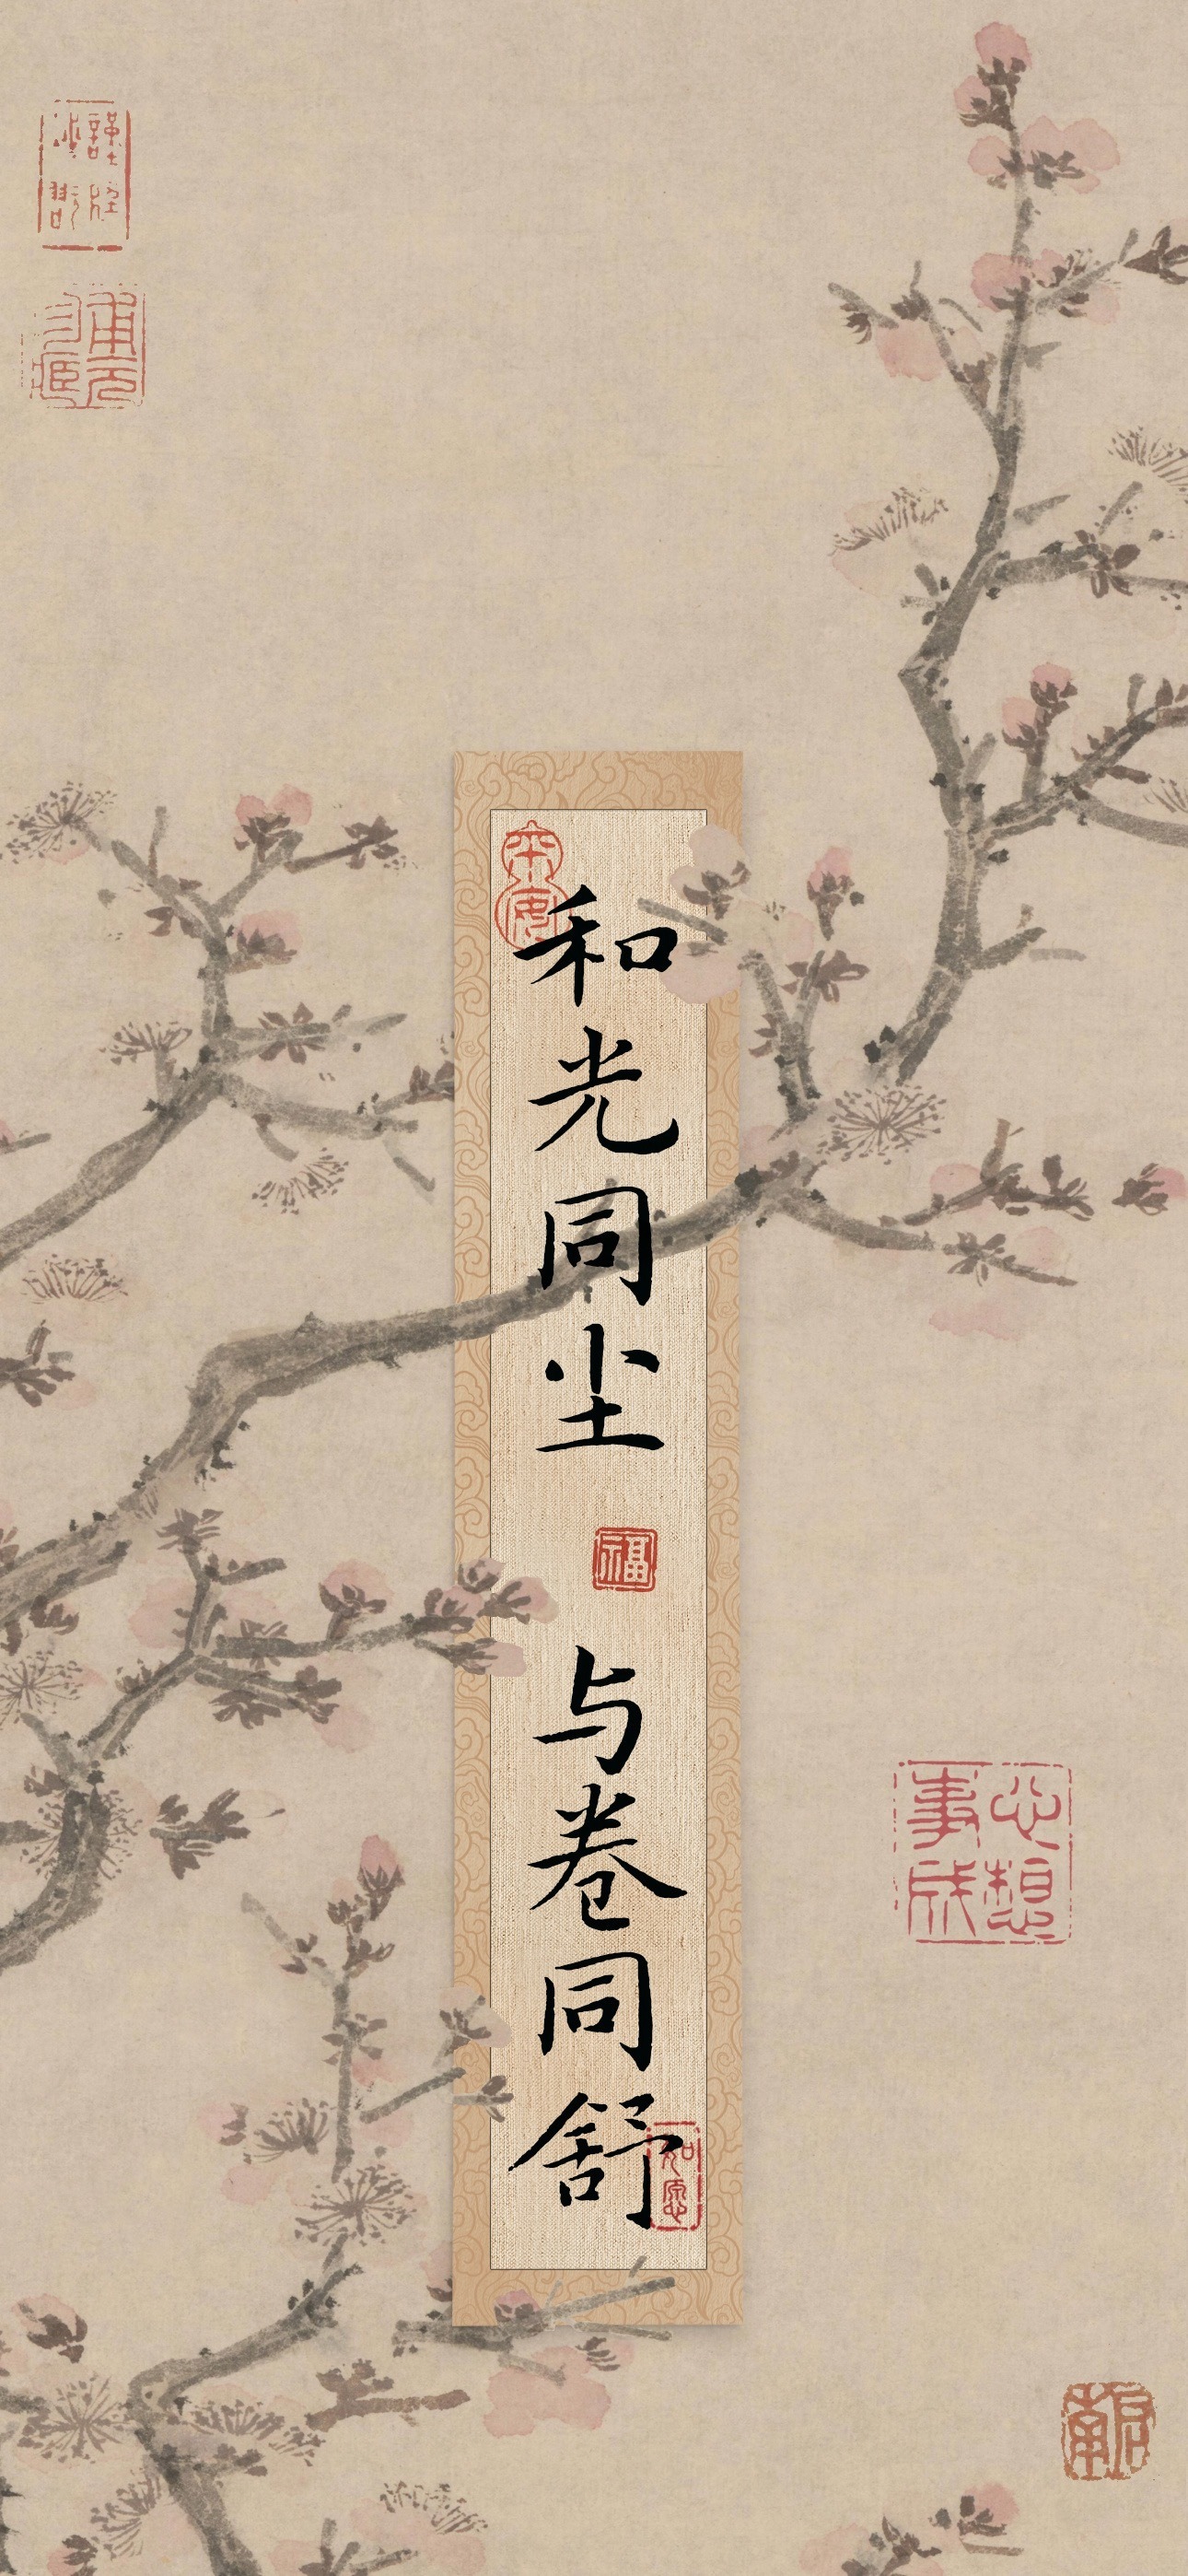 和光同尘
福
与卷同舒
如愿
心想
事成